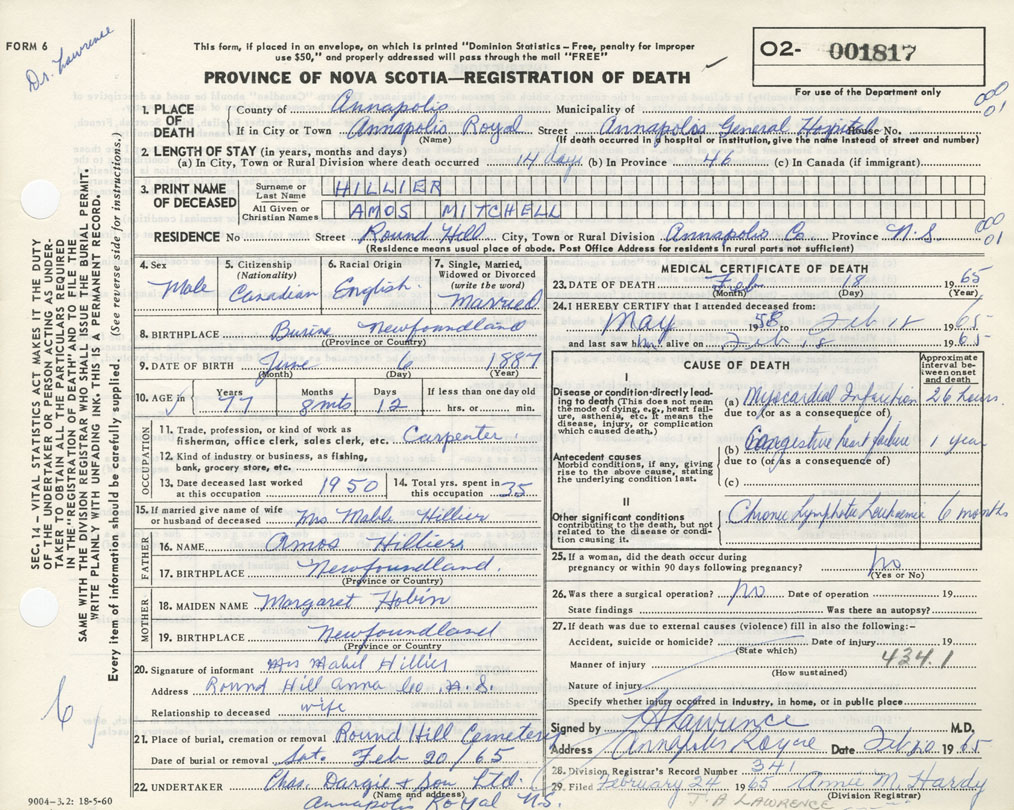 FORM 6
Dr. Lawrence
This form, if placed in an envelope, on which is printed "Dominion Statistics – Free, penalty for improper
use $50," and properly addressed will pass through the mail "FREE"
PROVINCE OF NOVA SCOTIA—REGISTRATION OF DEATH
O2- 001817
For use of the Department only
SEC. 14 – VITAL STATISTICS ACT MAKES IT THE DUTY
OF THE UNDERTAKER OR PERSON ACTING AS UNDER-
TAKER TO OBTAIN ALL THE PARTICULARS REQUIRED
IN THE "REGISTRATION OF DEATH" AND TO FILE THE
SAME WITH THE DIVISION REGISTRAR WHO SHALL ISSUE THE BURIAL PERMIT.
WRITE PLAINLY WITH UNFADING INK. THIS IS A PERMANENT RECORD.
Every item of information should be carefully supplied. (See reverse side for instructions.)
1. PLACE OF DEATH
County of Annapolis Municipality of
If in City or Town Annapolis Royal Street Annapolis General Hospital House No.
(Name) (If death occurred in hospital or institution, give the name instead of street and number)
000
01
2. LENGTH OF STAY (in years, months and days)
(a) In City, Town or Rural Division where death occurred 14 days (b) In Province 46 (c) In Canada (if immigrant)
3. PRINT NAME OF DECEASED
Surname or Last Name HILLIER
All Given or Christian Names AMOS MITCHELL
RESIDENCE No Street Round Hill City, Town or Rural Division Annapolis Co Province N.S.
(Residence means usual place of abode. Post Office Address for residents in rural parts not sufficient)
000
01
4. Sex Male
5. Citizenship (Nationality) Canadian
6. Racial Origin English.
7. Single, Married, Widowed or Divorced (write the word) Married
8. BIRTHPLACE Burin Newfoundland
(Province or Country)
9. DATE OF BIRTH June 6 1887
(Month) (Day) (Year)
10. AGE in Years 77 Months 8 mts Days 12 If less than one day old hrs. or min.
OCCUPATION
11. Trade, profession, or kind of work as
fisherman, office clerk, sales clerk, etc. Carpenter.
12. Kind of industry or business, as fishing,
bank, grocery store, etc.
13. Date deceased last worked at this occupation 1950
14. Total yrs. spent in this occupation 35
15. If married give name of wife
or husband of deceased Mrs. Mable Hillier
FATHER
16. NAME Amos Hilliers
17. BIRTHPLACE Newfoundland.
(Province or Country)
MOTHER
18. MAIDEN NAME Margaret Hobin
19. BIRTHPLACE Newfoundland
(Province or Country)
20. Signature of informant Mrs Mabel Hillier
Address Round Hill Anna Co. N.S.
Relationship to deceased wife
21. Place of burial, cremation or removal Round Hill Cemetery
Date of burial or removal Sat. Feb 20/65
22. UNDERTAKER Chas. Dargie & Son Ltd.
(Name and address)
Annapolis Royal N.S.
9004–3.2: 18-5-60
MEDICAL CERTIFICATE OF DEATH
23. DATE OF DEATH Feb 18 1965
(Month) (Day) (Year)
24. I HEREBY CERTIFY that I attended deceased from:
May 1958 to Feb 18 1965
and last saw him alive on Feb 18 1965
CAUSE OF DEATH
Approximate interval between onset and death
I
Disease or condition directly leading to death (This does not mean the mode of dying, e.g., heart failure, asthenia, etc. It means the disease, injury, or complication which caused death.)
(a) Myocardial Infarction 26 hours.
due to (or as a consequence of)
Antecedent causes
Morbid conditions, if any, giving rise to the above cause, stating the underlying condition last.
(b) Congestive heart failure 1 year
due to (or as a consequence of)
(c)
II
Other significant conditions
contributing to the death, but not related to the disease or condition causing it.
Chronic Lymphatic Leukaemia 6 months
25. If a woman, did the death occur during
pregnancy or within 90 days following pregnancy? No
(Yes or No)
26. Was there a surgical operation? No Date of operation 19
State findings Was there an autopsy?
27. If death was due to external causes (violence) fill in also the following:–
Accident, suicide or homicide? Date of injury 19
(State which) 434.1
Manner of injury
(How sustained)
Nature of injury
Specify whether injury occurred in Industry, in home, or in public place
Signed by Lawrence M.D.
Address Annapolis Royal Date Feb 20 1965
28. Division Registrar's Record Number 341
29. Filed February 24 1965 Annie M. Hardy
(Division Registrar)
J. A. LAWRENCE